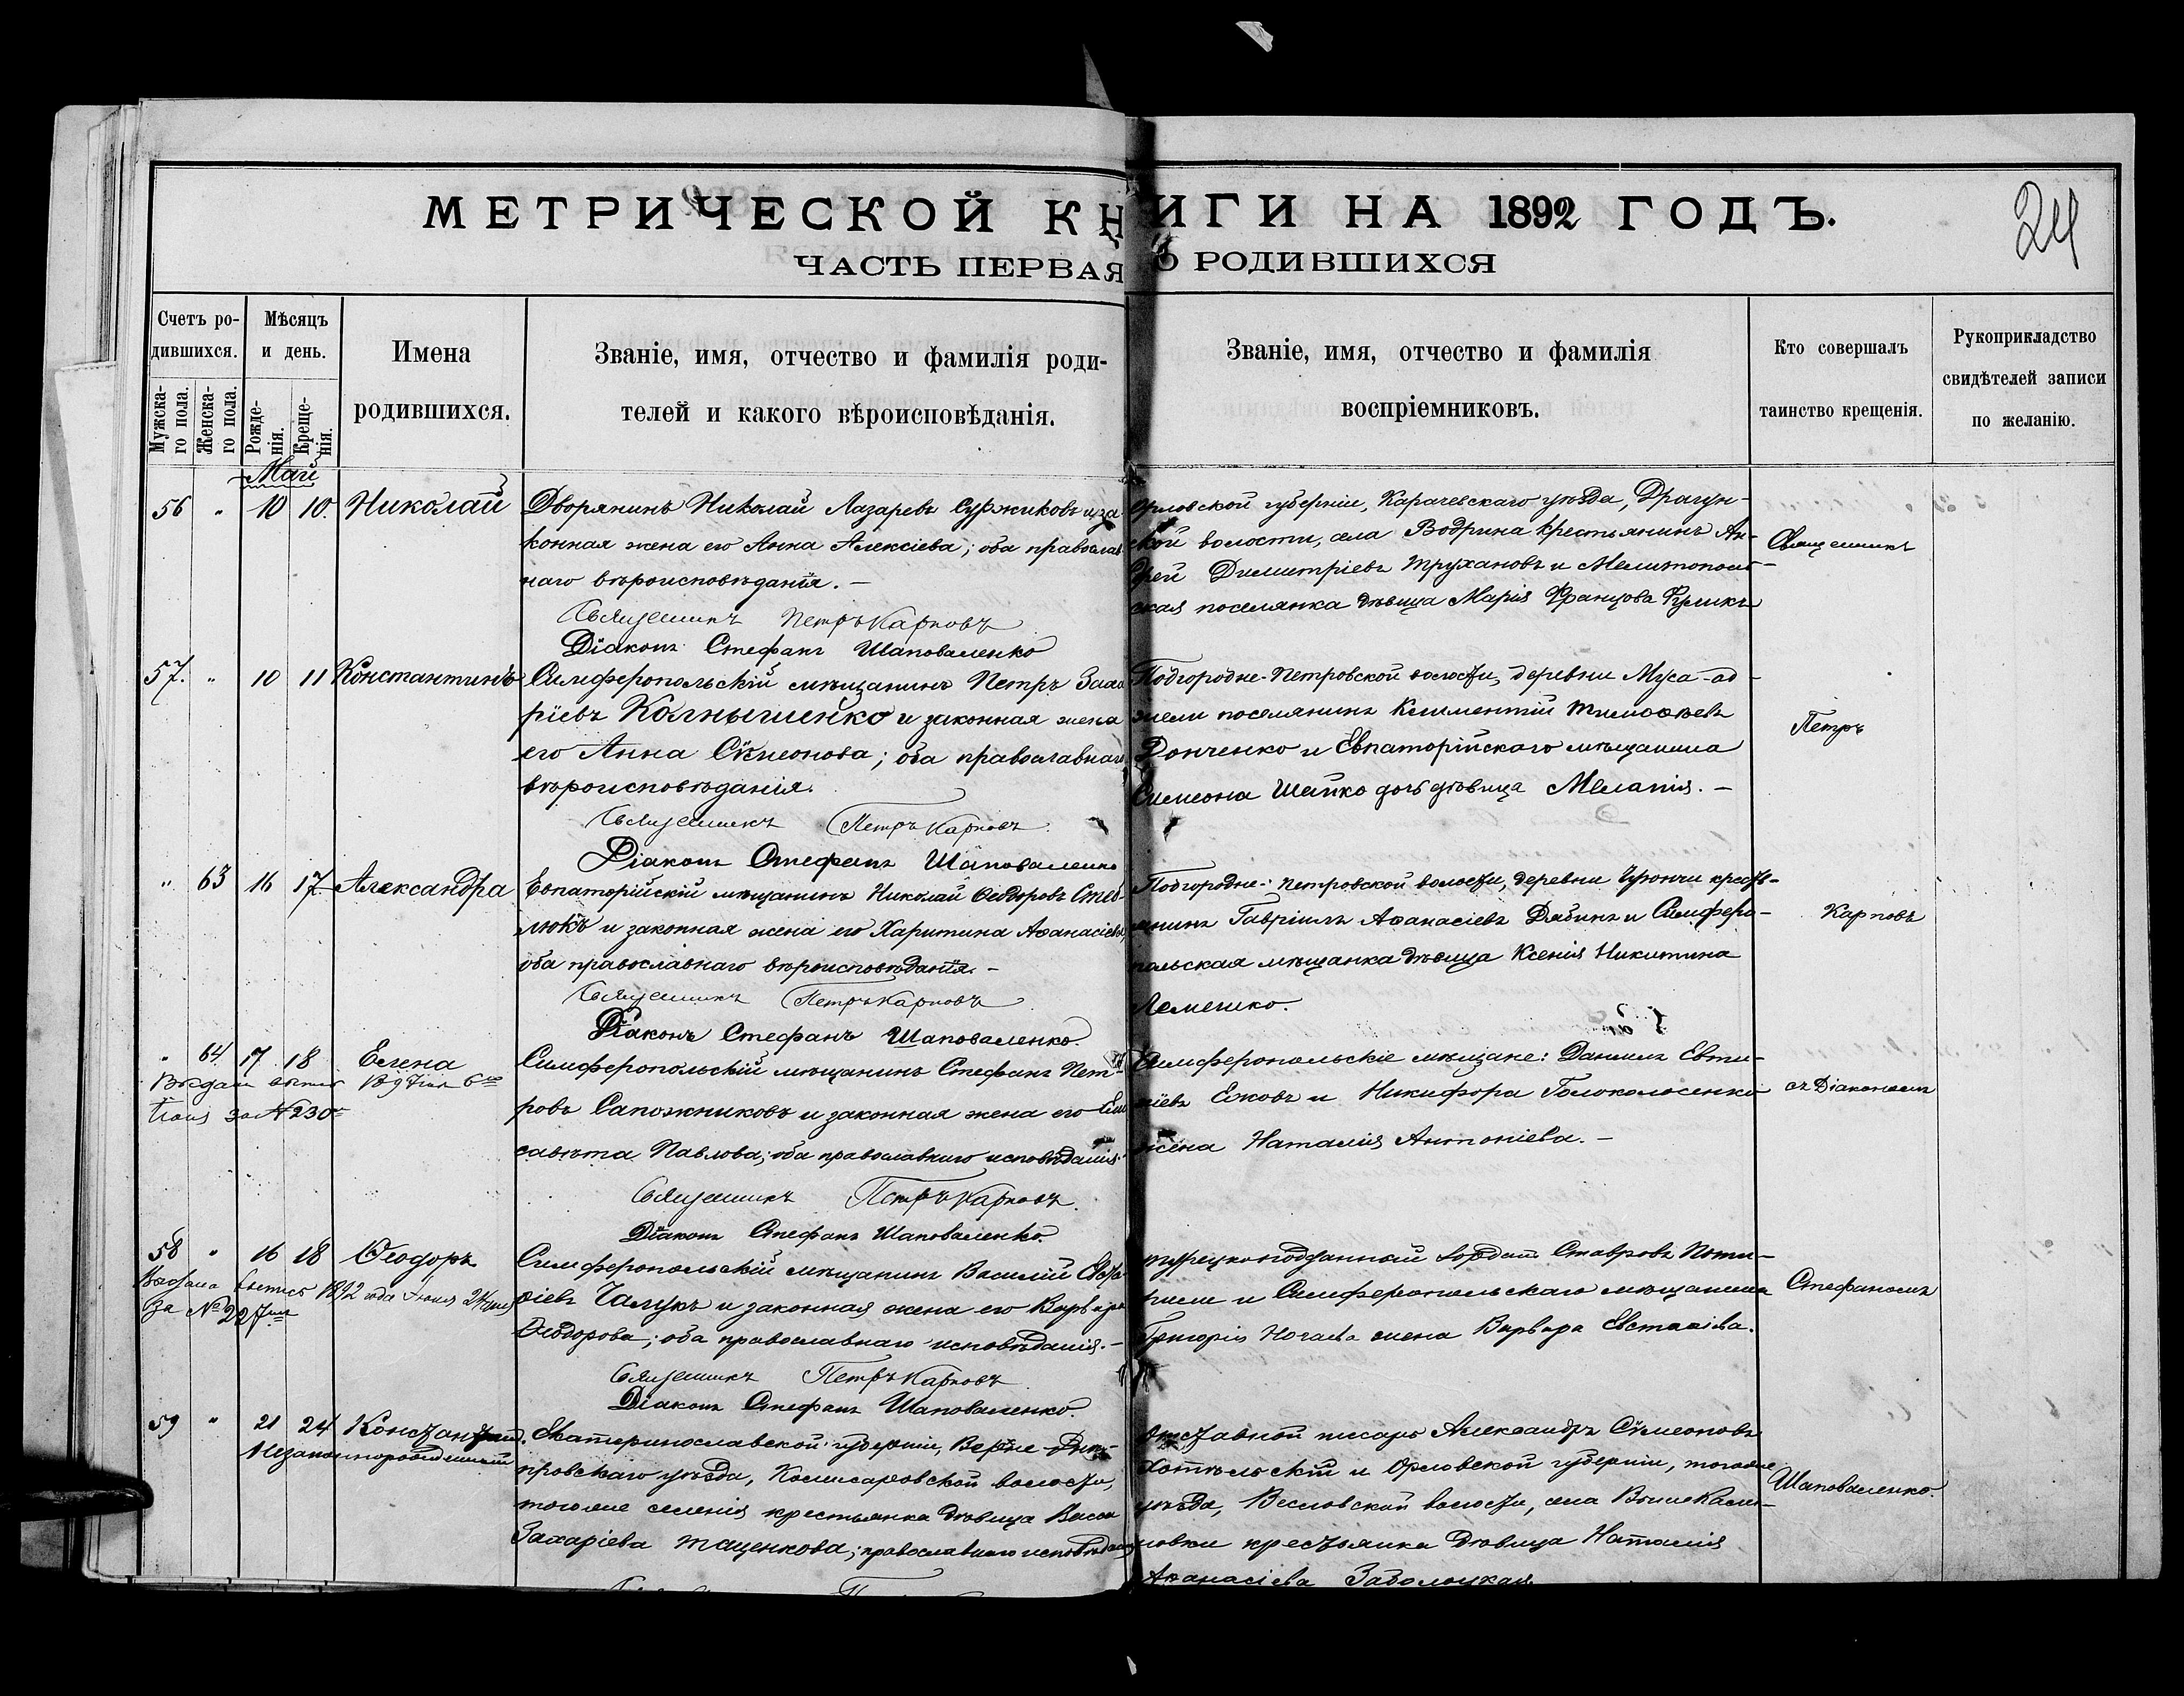 МЕТРИЧЕСКОЙ КНИГИ НА 1892 ГОДЪ.
24
ЧАСТЬ ПЕРВАЯ О РОДИВШИХСЯ
Счетъ ро-
дившихся.
Мужска-
го пола.
Женска-
го пола.
Мѣсяцъ
и день.
Рожде-
нія.
Креще-
нія.
Имена
родившихся.
Званіе, имя, отчество и фамилія роди-
телей и какого вѣроисповѣданія.
Званіе, имя, отчество и фамилія
воспріемниковъ.
Кто совершалъ
таинство крещенія.
Рукоприкладство
свидѣтелей записи
по желанію.
Май
56 " 10 10. Николай
Дворянинъ Николай Лазаревъ Сужниковъ и за-
конная жена его Анна Алексіева; оба православ
наго вѣроисповѣданія. —
Священникъ Петръ Карповъ
Діаконъ Стефанъ Шаповаленко
Орловской губерніи, Карачевскаго уѣзда, Драгун-
ской волости, села Бодрина крестьянинъ Ан-
дрей Димитріевъ Трухановъ и Мелитополь-
ская поселянка дѣвица Марія Францова
Священникъ
57. " 10 11 Константинъ
Симферопольскій мѣщанинъ Петръ
ріевъ Колнышенко и законная жена
его Анна Сѵмеонова; оба православнаго
вѣроисповѣданія.
Священникъ Петръ Карповъ
Діаконъ Стефанъ Шаповаленко
Подгородне-Петровской волости, деревни Муса-ад-
жели поселянинъ Климентій Тимоѳѣевъ
Донченко и Евпаторійскаго мѣщанина
Симеона Шайко дочь дѣвица Меланія. —
Петръ
" 63 16 17 Александра
Евпаторійскій мѣщанинъ Николай Ѳеодоровъ
люкъ и законная жена его Харитина Аѳанасіева,
оба православнаго вѣроисповѣданія. —
Священникъ Петръ Карповъ
Діаконъ Стефанъ Шаповаленко
Подгородне-Петровской волости, деревни крестья-
нинъ Гавріилъ Аѳанасіевъ Дябинъ и Симферо-
польская мѣщанка дѣвица Ксенія Никитина
Лемешко.
Карповъ
" 64 17 18 Елена
за № 230
Симферопольскій мѣщанинъ Стефанъ Пет-
ровъ Сапожниковъ и законная жена его Ели
савѣта Павлова; оба православнаго исповѣданія.
Священникъ Петръ Карповъ.
Діаконъ Стефанъ Шаповаленко.
Симферопольскіе мѣщане: Даніилъ Евти-
хіевъ Ежовъ и Никифора Голоколосенко
жена Наталія Антоніева. —
съ Діакономъ
58 " 16 18 Ѳеодоръ
Выдана выпись 1892 года Іюня 24 дня
за № 227
Симферопольскій мѣщанинъ Василій
фіевъ Чалукъ и законная жена его Варвара
Ѳеодорова; оба православнаго исповѣданія. —
Священникъ Петръ Карповъ
Діаконъ Стефанъ Шаповаленко.
турецкоподданный Ставровъ
и Симферопольскаго мѣщанина
Григорія Ногаева жена Варвара Евстаѳіева.
Стефаномъ
59 " 21 24 Константинъ.
Незаконнорожденный
Екатеринославской губерніи, Верхне-Днѣ-
провскаго уѣзда, Комисаровской волости,
тогоже селенія крестьянка дѣвица Васса
Захаріева Таценкова; православнаго исповѣданія
Отставной писарь Александръ Сѵмеоновъ
Хотѣльскій и Орловской губерніи, тогоже
уѣзда, волости, села
новки крестьянка дѣвица Наталія
Аѳанасіева Заболоцкая.
Шаповаленко.